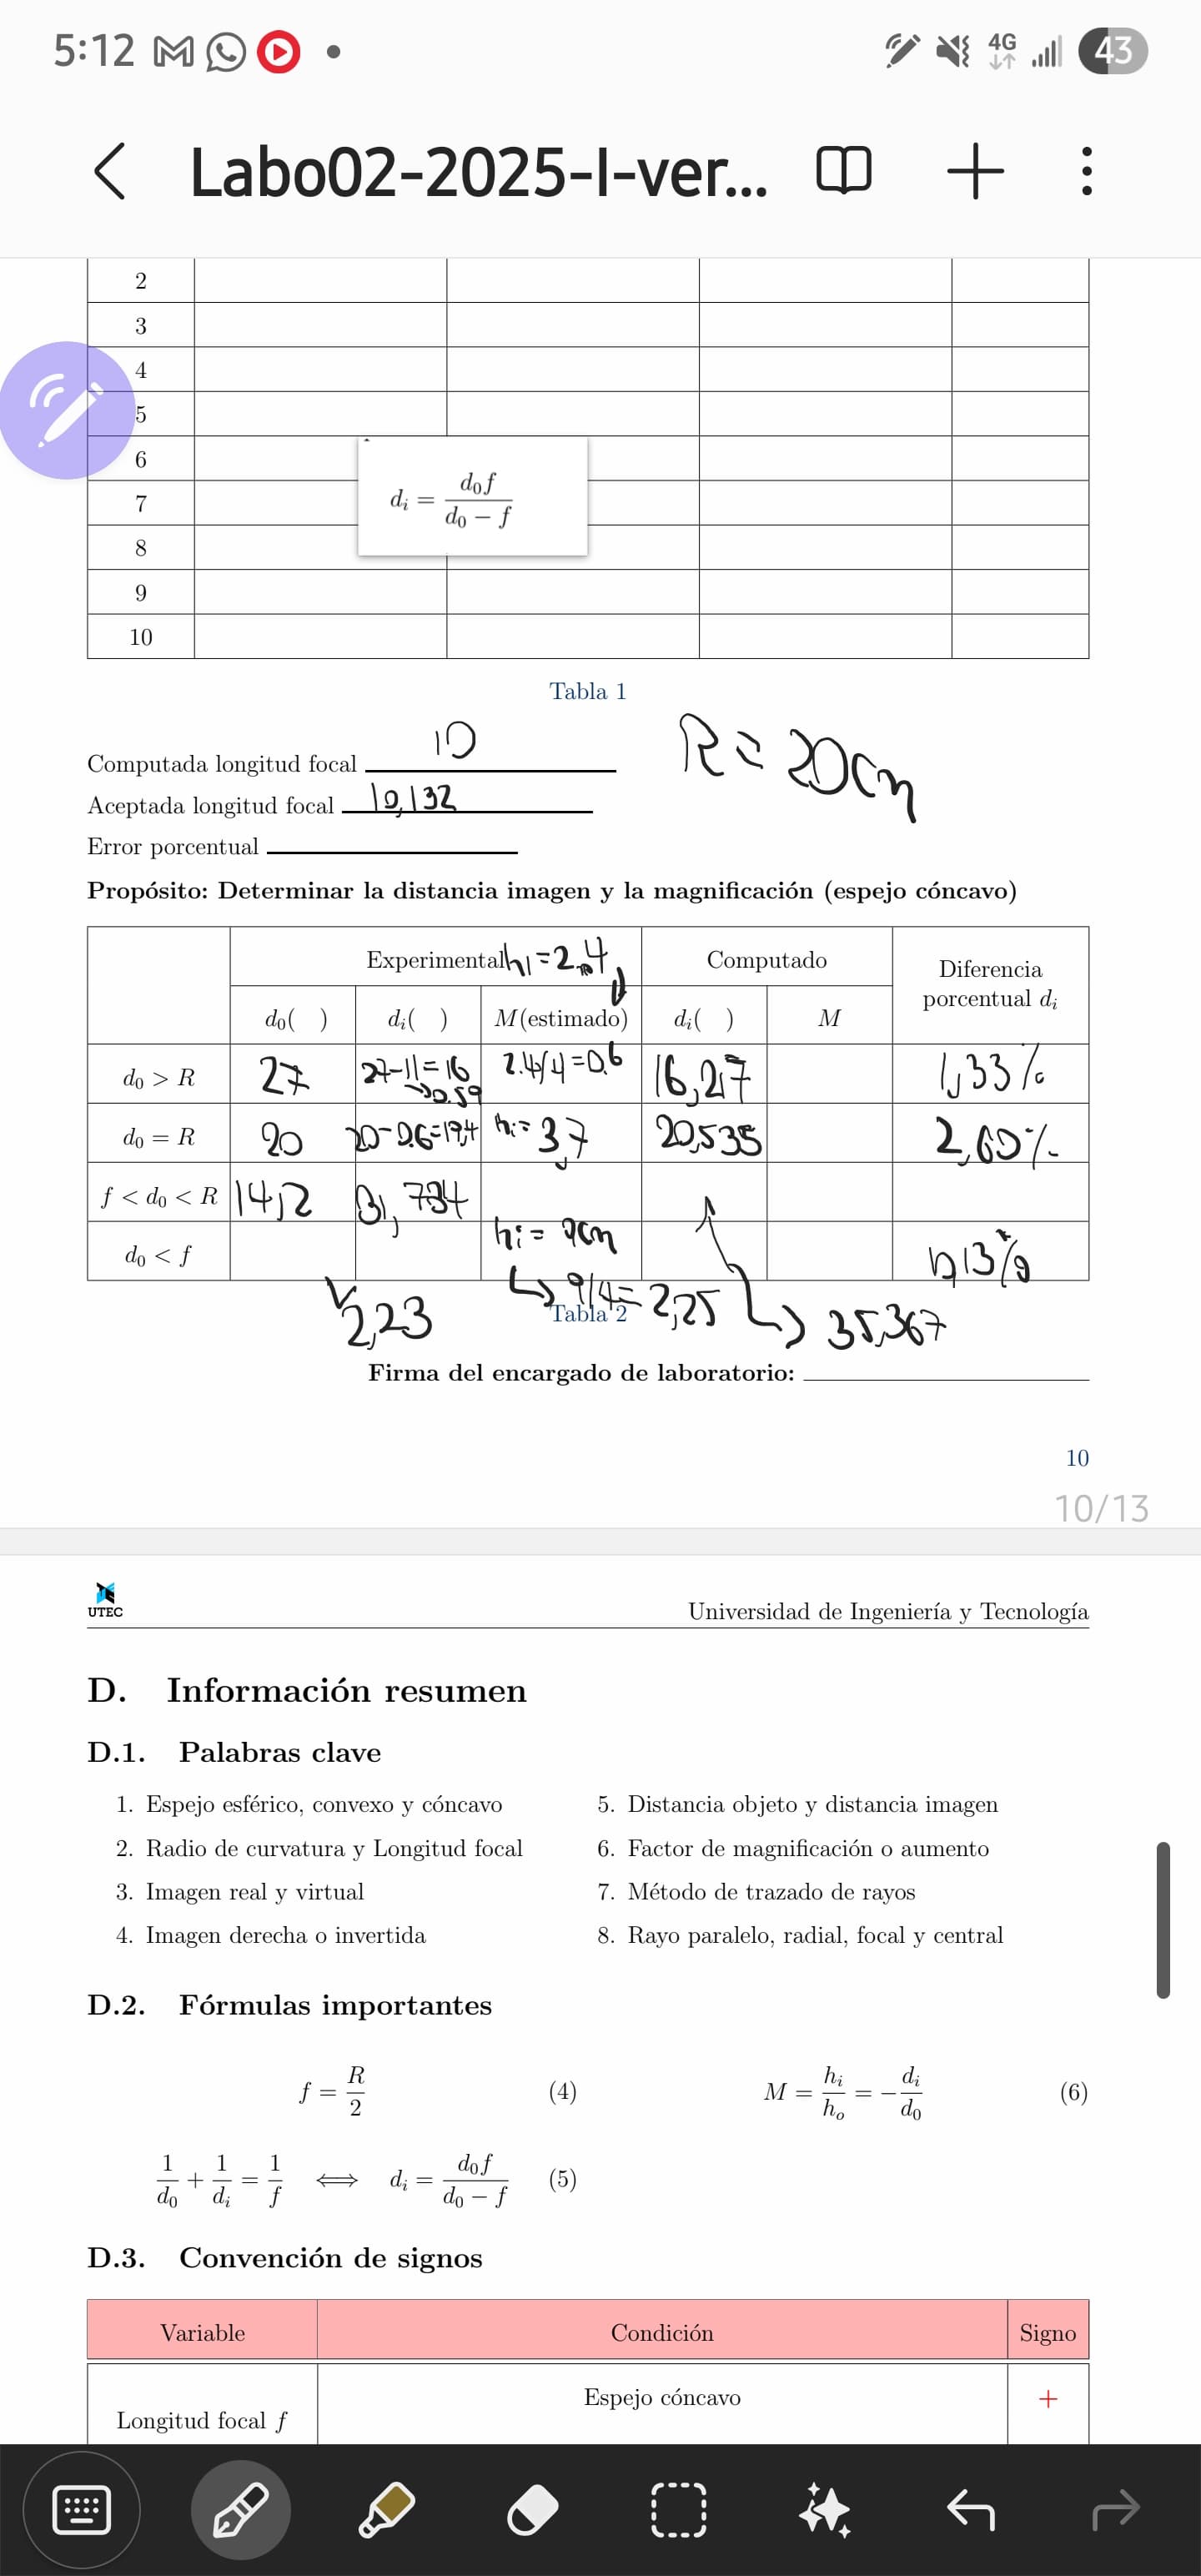 5:12
4G
43
Labo02-2025-I-ver...
2
3
4
5
6
7
8
9
10
d_i = d_0 f / (d_0 − f)
Tabla 1
Computada longitud focal 10
R = 20cm
Aceptada longitud focal 10,132
Error porcentual
Propósito: Determinar la distancia imagen y la magnificación (espejo cóncavo)
Experimental Computado Diferencia porcentual d_i
d_0( ) d_i( ) M(estimado) d_i( ) M
d_0 > R 27 27-11=16 →0.59 2.4/4=0.6 16,27 1,33%
d_0 = R 20 hi= 3,7 20,535 2,60%
f < d_0 < R 14,2 31,734
d_0 < f hi= 9cm
2,23 ↳ 9/4= 2,25 ↳ 35,367
Tabla 2
Firma del encargado de laboratorio:
10
10/13
UTEC
Universidad de Ingeniería y Tecnología
D. Información resumen
D.1. Palabras clave
1. Espejo esférico, convexo y cóncavo
2. Radio de curvatura y Longitud focal
3. Imagen real y virtual
4. Imagen derecha o invertida
5. Distancia objeto y distancia imagen
6. Factor de magnificación o aumento
7. Método de trazado de rayos
8. Rayo paralelo, radial, focal y central
D.2. Fórmulas importantes
f = R/2 (4)
M = h_i/h_o = −d_i/d_0 (6)
1/d_0 + 1/d_i = 1/f ⟺ d_i = d_0 f / (d_0 − f) (5)
D.3. Convención de signos
Variable Condición Signo
Longitud focal f Espejo cóncavo +